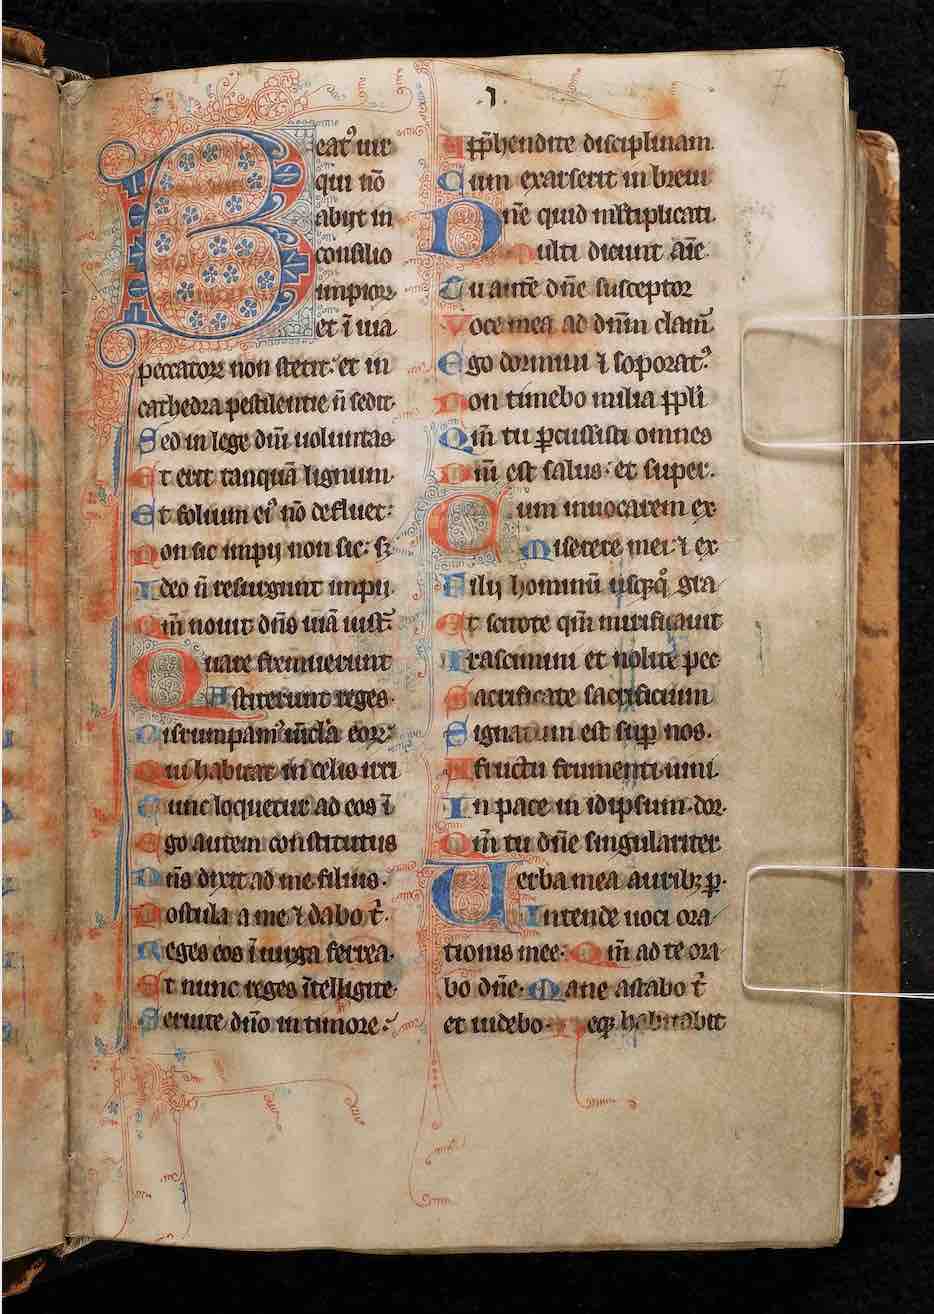 7
1.
Beat᷒ uir
qui nō
abijt in
consilio
impior
et ĩ uia
peccator non stetit: et in
cathedra pestilentie n̄ sedit
Sed in lege dn̄i uoluntas
Et erit tanquā lignum
Et folium ei᷒ nō defluet:
Non sic impij non sic: sꝫ
Ideo n̄ resurgunt impij.
Qm̄ nouit dn̄s uiā iust̄
Quare fremuerunt
Astiterunt reges.
Disrumpam᷒ uīcla eoꝝ:
Qui habitat in celis irri
Tunc loquetur ad eos ĩ
Ego autem constitutus
Dn̄s dixit ad me filius.
Postula a me ⁊ dabo t̄.
Reges eos ĩ uirga ferrea.
Et nunc reges ĩtelligite.
Seruite dn̄o in timore:
App̄hendite disciplinam.
Cum exarserit in breui
Dn̄e quid ml̄tiplicati.
Multi dicunt aīe
Tu autē dn̄e susceptor
Voce mea ad dn̄m clam̄.
Ego dormiui ⁊ soporat᷒.
Non timebo milia ppl̄i
Qm̄ tu ꝑcussisti omnes
Dn̄i est salus: et super.
Cum inuocarem ex
Miserere mei ⁊ ex
Filij hominū usqꝫq̊ gra
Et scitote qm̄ mirificauit
Irascimini et nolite pec
Sacrificate sacrificium
Signatum est suꝑ nos.
A fructu frumenti uini.
In pace in idipsum. dor.
Qm̄ tu dn̄e singulariter
Uerba mea auribꝫ ꝑ.
Intende uoci ora
tionis mee. Qm̄ ad te ora
bo dn̄e. Mane astabo t̄
et uidebo. Neqꝫ habitabit